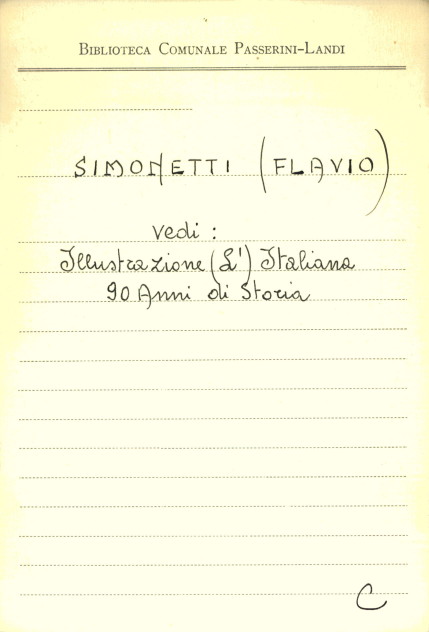 BIBLIOTECA COMUNALE PASSERINI-LANDI
SIMONETTI (FLAVIO)
vedi :
Illustrazione (L') Italiana
90 Anni di Storia
C